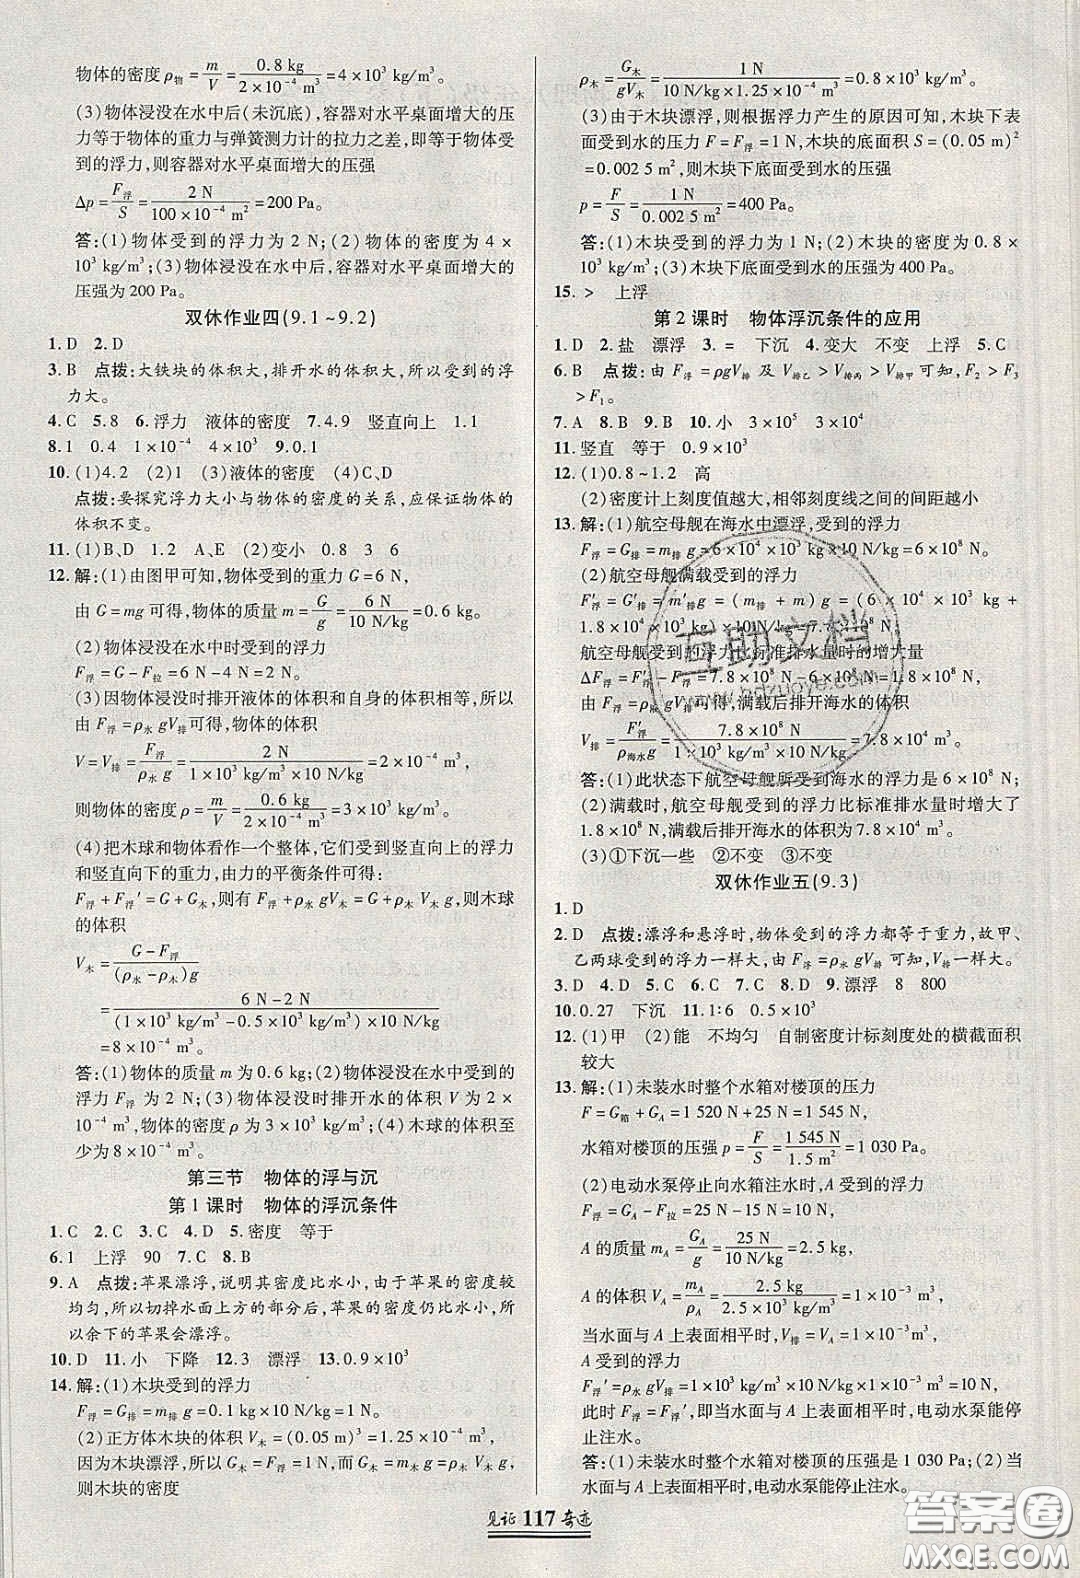 物体的密度ρ物=m/V=0.8 kg/(2×10⁻⁴ m³)=4×10³ kg/m³。
(3)物体浸没在水中后(未沉底),容器对水平桌面增大的压
力等于物体的重力与弹簧测力计的拉力之差,即等于物体受
到的浮力,则容器对水平桌面增大的压强
Δp=F浮/S=2 N/(100×10⁻⁴ m²)=200 Pa。
答:(1)物体受到的浮力为 2 N;(2)物体的密度为 4×
10³ kg/m³;(3)物体浸没在水中后,容器对水平桌面增大的
压强为 200 Pa。
双休作业四(9.1~9.2)
1.D 2.D
3.B 点拨:大铁块的体积大,排开水的体积大,所以受到的浮
力大。
4.C 5.8 6.浮力 液体的密度 7.4.9 竖直向上 1.1
8.1 0.4 1×10⁻⁴ 4×10³ 9.0.1
10.(1)4.2 (2)1 (3)液体的密度 (4)C、D
点拨:要探究浮力大小与物体的密度的关系,应保证物体的
体积不变。
11.(1)B、D 1.2 A、E (2)变小 0.8 3 6
12.解:(1)由图甲可知,物体受到的重力 G=6 N,
由 G=mg 可得,物体的质量 m=G/g=6 N/(10 N/kg)=0.6 kg。
(2)物体浸没在水中时受到的浮力
F浮=G-F拉=6 N-4 N=2 N。
(3)因物体浸没时排开液体的体积和自身的体积相等,所以
由 F浮=ρ水 gV排可得,物体的体积
V=V排=F浮/(ρ水 g)=2 N/(1×10³ kg/m³×10 N/kg)=2×10⁻⁴ m³,
则物体的密度 ρ=m/V=0.6 kg/(2×10⁻⁴ m³)=3×10³ kg/m³。
(4)把木球和物体看作一个整体,它们受到竖直向上的浮力
和竖直向下的重力,由力的平衡条件可得:
F浮+F浮′=G+G木,则有 F浮+ρ水 gV木=G+ρ木 V木 g,则木球
的体积
V木=(G-F浮)/((ρ水-ρ木)g)
=(6 N-2 N)/((1×10³ kg/m³-0.5×10³ kg/m³)×10 N/kg)
=8×10⁻⁴ m³。
答:(1)物体的质量 m 为 0.6 kg;(2)物体浸没在水中受到的
浮力 F浮 为 2 N;(3)物体浸没时排开水的体积 V 为 2×
10⁻⁴ m³,物体的密度 ρ 为 3×10³ kg/m³;(4)木球的体积至
少为 8×10⁻⁴ m³。
第三节 物体的浮与沉
第 1 课时 物体的浮沉条件
1.C 2.C 3.C 4.D 5.密度 等于
6.1 上浮 90 7.C 8.B
9.A 点拨:苹果漂浮,说明其密度比水小,由于苹果的密度较
均匀,所以切掉水面上方的部分后,苹果的密度仍比水小,所
以余下的苹果会漂浮。
10.D 11.小 下降 12.3 漂浮 13.0.9×10³
14.解:(1)木块受到的浮力
F浮=G排=m排 g=0.1 kg×10 N/kg=1 N。
(2)正方体木块的体积 V木=(0.05 m)³=1.25×10⁻⁴ m³,
因为木块漂浮,所以 G木=F浮=1 N,而 G木=m木 g=ρ木 gV木,
则木块的密度
ρ木=G木/(gV木)=1 N/(10 N/kg×1.25×10⁻⁴ m³)=0.8×10³ kg/m³。
(3)由于木块漂浮,则根据浮力产生的原因可知,木块下表
面受到水的压力 F=F浮=1 N,木块的底面积 S=(0.05 m)²
=0.002 5 m²,则木块下底面受到水的压强
p=F/S=1 N/(0.002 5 m²)=400 Pa。
答:(1)木块受到的浮力为 1 N;(2)木块的密度为 0.8×
10³ kg/m³;(3)木块下底面受到水的压强为 400 Pa。
15.> 上浮
第 2 课时 物体浮沉条件的应用
1.D 2.盐 漂浮 3.= 下沉 4.变大 不变 上浮 5.C
6.B 点拨:由 F浮=ρgV排 及 V排乙>V排丙>V排甲可知,F₂>F₃
>F₁。
7.A 8.B 9.B 10.小 3×10⁵ 3×10⁴
11.竖直 等于 0.9×10³
12.(1)0.8~1.2 高
(2)密度计上刻度值越大,相邻刻度线之间的间距越小
13.解:(1)航空母舰在海水中漂浮,受到的浮力
F浮=G排=m排 g=6×10⁷ kg×10 N/kg=6×10⁸ N。
(2)航空母舰满载受到的浮力
F′浮=G′排=m′排 g=(m排+m)g=(6×10⁷ kg+
1.8×10⁷ kg)×10 N/kg=7.8×10⁸ N,
航空母舰受到的浮力比标准排水量时的增大量
ΔF浮=F′浮-F浮=7.8×10⁸ N-6×10⁸ N=1.8×10⁸ N,
由 F浮=ρ海水 gV排可得,满载后排开海水的体积
V排=F′浮/(ρ海水 g)=7.8×10⁸ N/(1×10³ kg/m³×10 N/kg)=7.8×10⁴ m³。
答:(1)此状态下航空母舰所受到海水的浮力是 6×10⁸ N;
(2)满载时,航空母舰受到的浮力比标准排水量时增大了
1.8×10⁸ N,满载后排开海水的体积为 7.8×10⁴ m³。
(3)①下沉一些 ②不变 ③不变
双休作业五(9.3)
1.D
2.D 点拨:漂浮和悬浮时,物体受到的浮力都等于重力,故甲、
乙两球受到的浮力一样大,由 F浮=ρ水 gV排 可知,……。
3.D 4.D 5.C 6.C 7.C 8.D 9.漂浮 8 800
10.0.27 下沉 11.1∶6 0.5×10³
12.(1)甲 (2)能 不均匀 自制密度计标刻度处的横截面积
较大
13.解:(1)未装水时整个水箱对楼顶的压力
F=G箱+G_A=1 520 N+25 N=1 545 N,
水箱对楼顶的压强 p=F/S=1 545 N/1.5 m²=1 030 Pa。
(2)电动水泵停止向水箱注水时,A 受到的浮力
F浮=G_A-F拉=25 N-15 N=10 N,
A 的质量 m_A=G_A/g=25 N/(10 N/kg)=2.5 kg,
A 的体积 V_A=m_A/ρ_A=2.5 kg/(2.5×10³ kg/m³)=1×10⁻³ m³,
当水面与 A 上表面相平时,V排=V_A=1×10⁻³ m³,
A 受到的浮力
F浮′=ρ水 gV排=1×10³ kg/m³×10 N/kg×1×10⁻³ m³=10 N,
此时 F浮=F浮′,即当水面与 A 上表面相平时,电动水泵能停
止注水。
答:(1)未装水时整个水箱对楼顶的压强为 1 030 Pa;(2)当
水面与 A 上表面相平时,电动水泵能停止注水。
见证 117 奇迹
互助文档
www.hdzuoye.com
答案圈
MXQE.COM